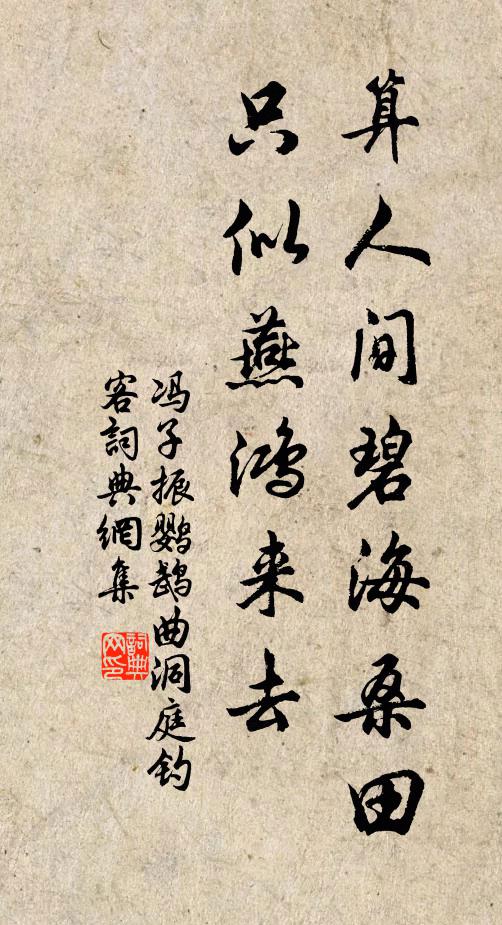 算人间碧海桑田
只似燕鸿来去
冯子振鹦鹉曲洞庭钓
客詞典網集
詞典
网印